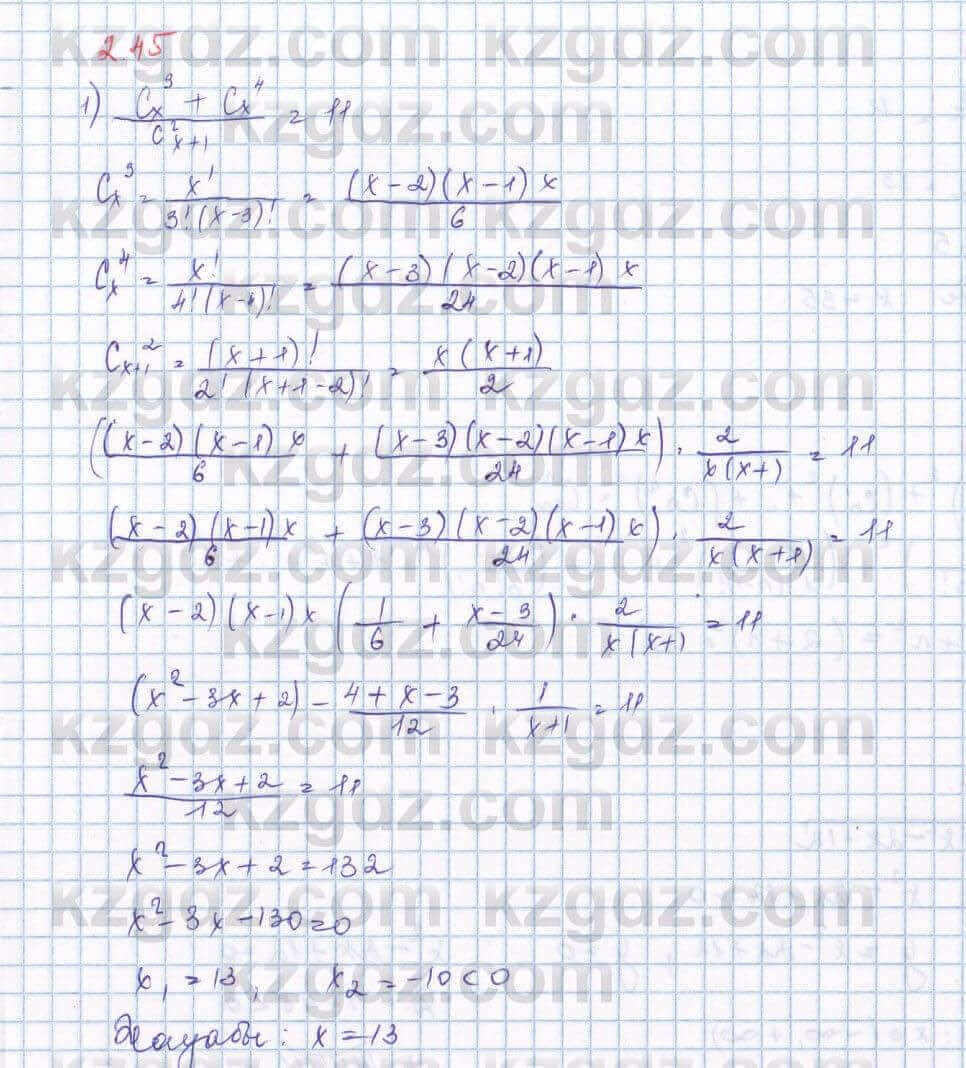 2.45
1) (Cx^3 + Cx^4)/(C^2 x+1) = 11
Cx^3 = x!/(3!(x-3)!) = ((x-2)(x-1)x)/6
Cx^4 = x!/(4!(x-4)!) = ((x-3)(x-2)(x-1)x)/24
Cx+1^2 = (x+1)!/(2!(x+1-2)!) = (x(x+1))/2
(((x-2)(x-1)x)/6 + ((x-3)(x-2)(x-1)x)/24) · 2/(x(x+)) = 11
(((x-2)(x-1)x)/6 + ((x-3)(x-2)(x-1)x)/24) · 2/(x(x+1)) = 11
(x-2)(x-1)x (1/6 + (x-3)/24) · 2/(x(x+)) = 11
(x^2-3x+2) - (4+x-3)/12 · 1/(x+1) = 11
(x^2-3x+2)/12 = 11
x^2-3x+2=132
x^2-3x-130=0
x1=13, x2=-10<0
Жауабы: x=13
kzgdz.com